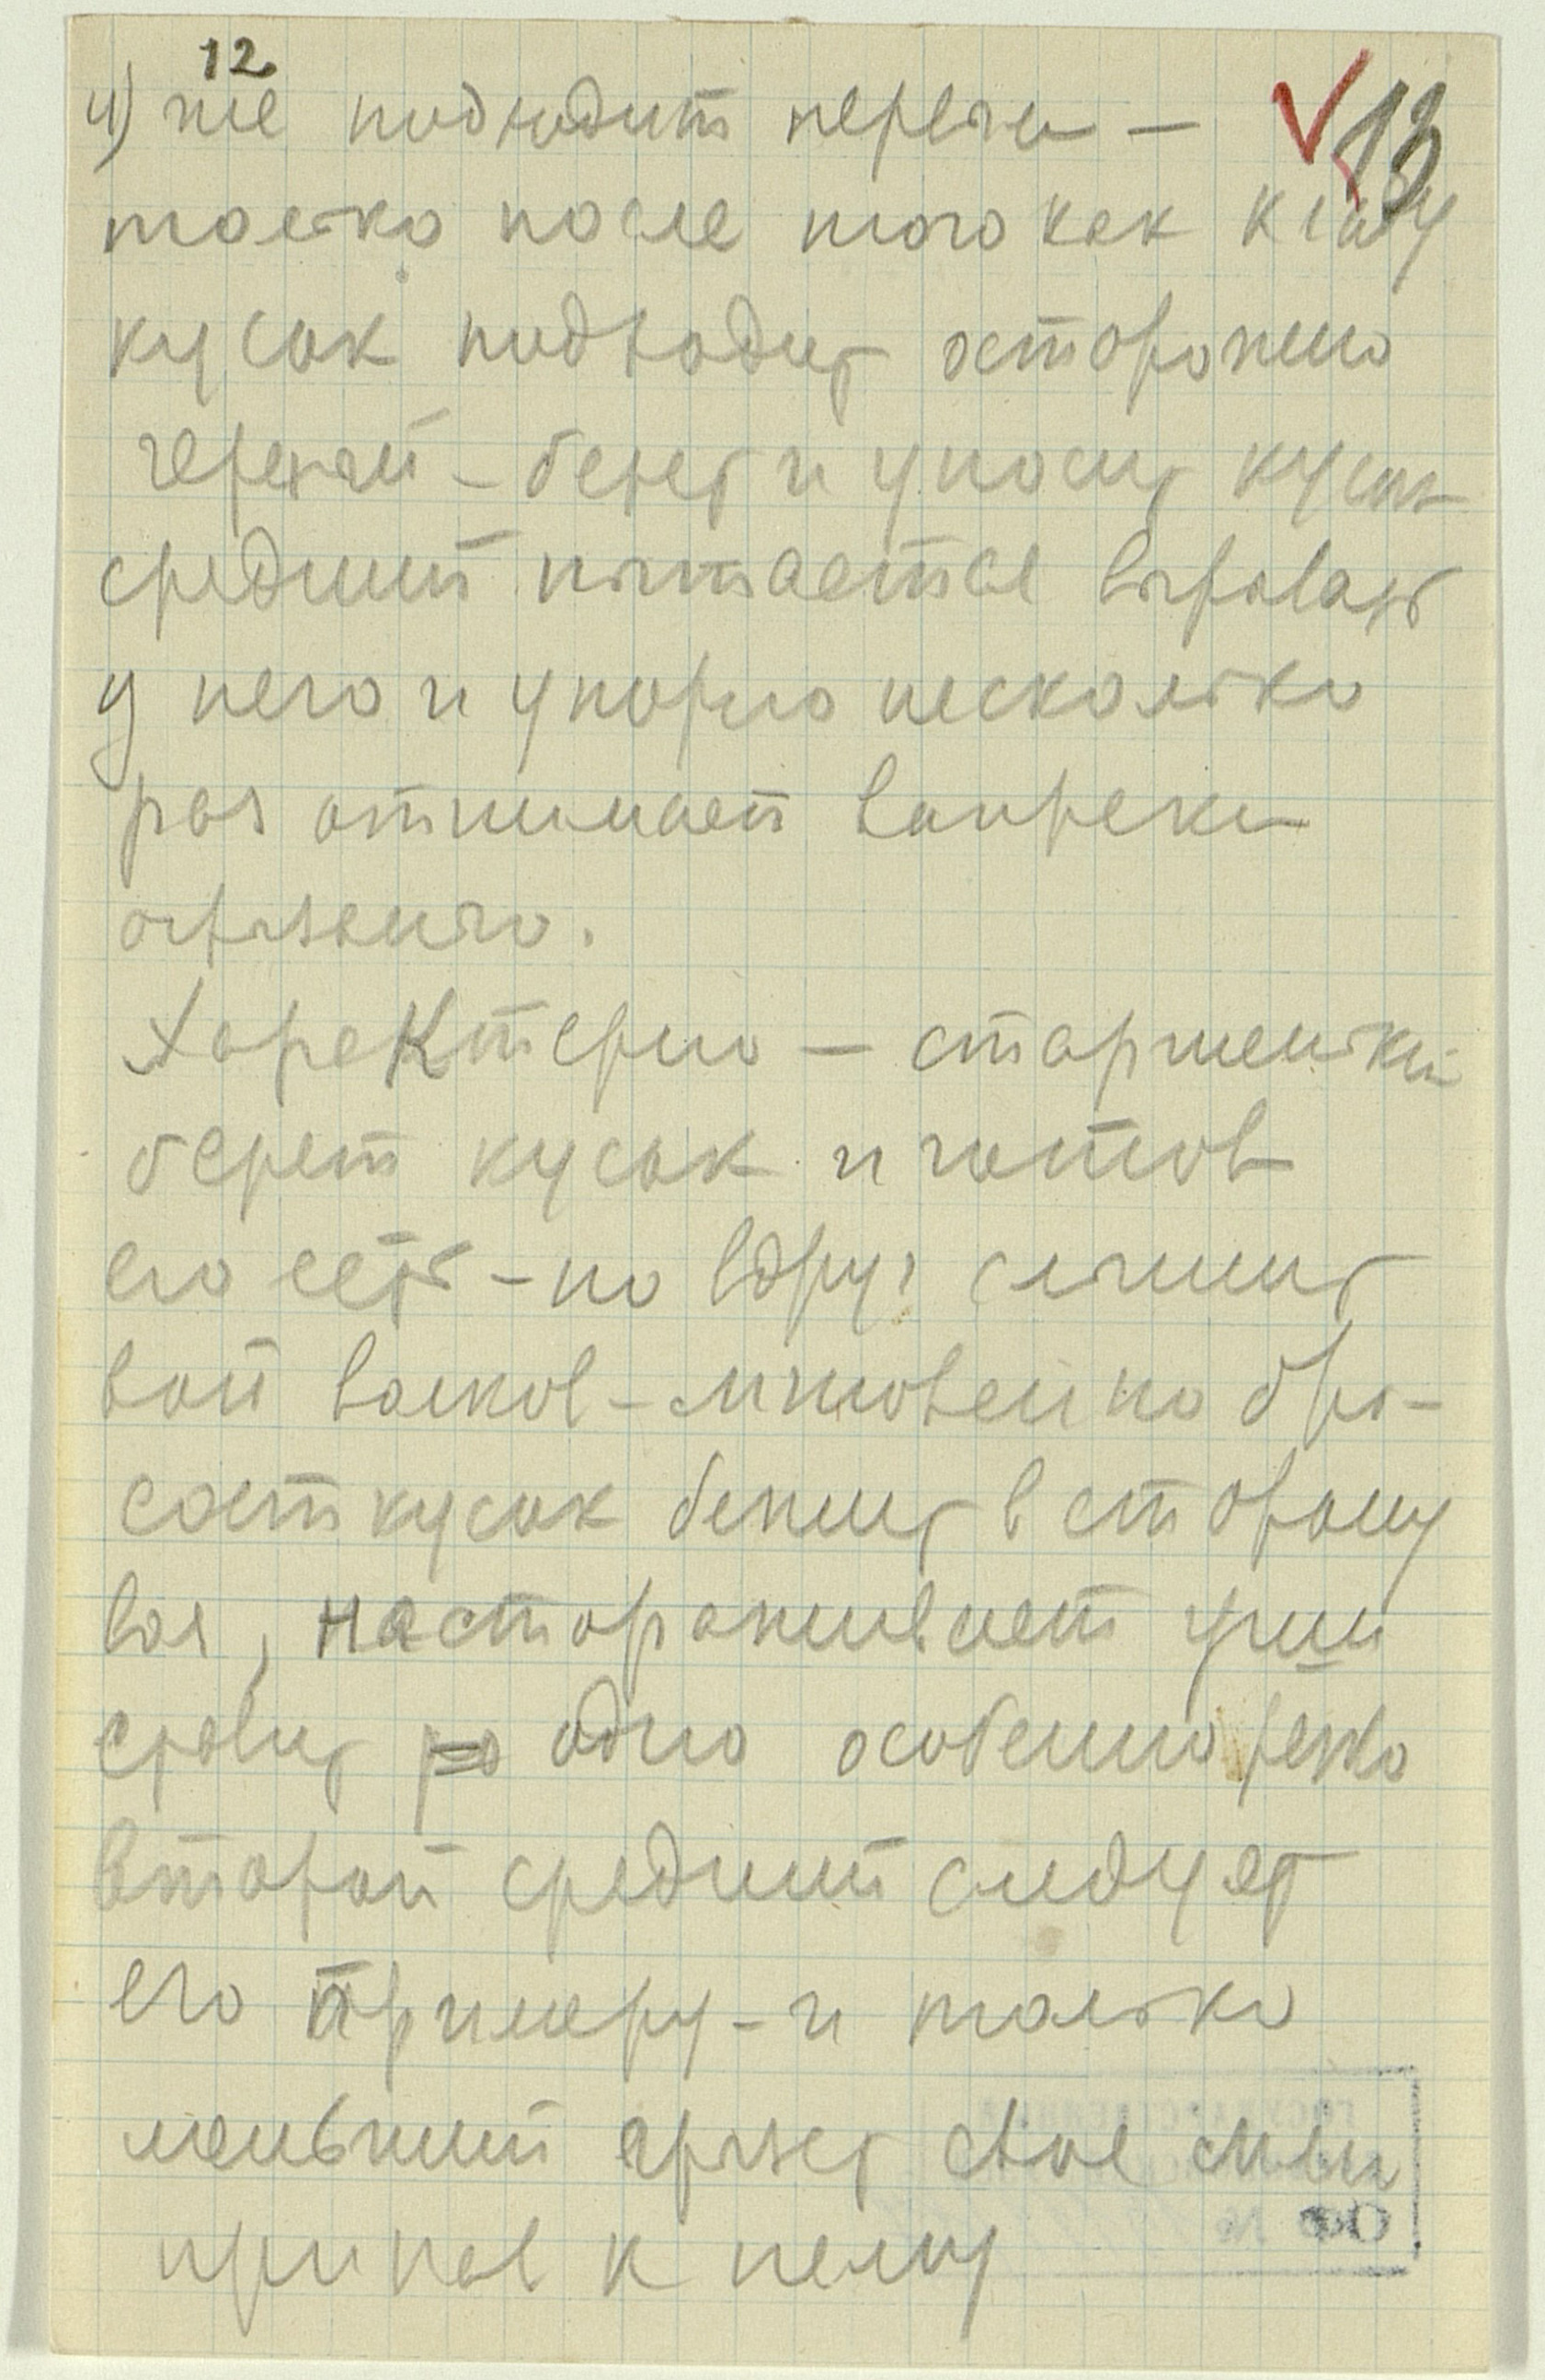 12
4) не подходит первы — 13
только после того как кладу
кусок подходит осторожно
берет и уносит кусок
средний пытается вырвать
у него и упорно несколько
раз отнимает вопреки
огрызанию.
Характерно — старшенький
берет кусок и готов
его есть - но вдруг слышит
вой волков - мгновенно бро-
сает кусок бежит в сторону
воя, настораживает уши
ставит одно особенно резко
второй средний следует
его примеру - и только
меньший грызет свое мясо
припав к нему